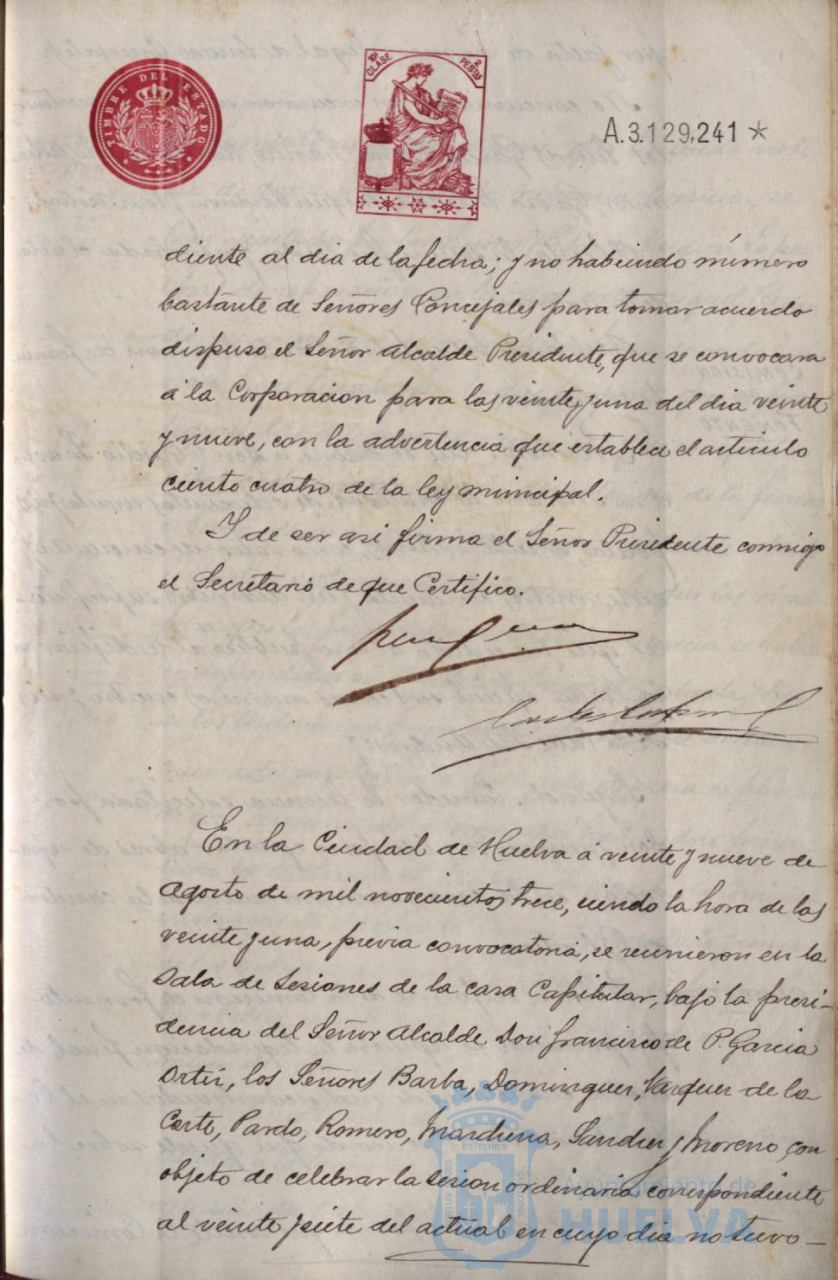 TIMBRE DEL ESTADO
10ª CLASE
2 PESTAS
A.3.129.241 *
diente al dia de la fecha; y no habiendo número
bastante de Señores Concejales para tomar acuerdo
dispuso el Señor Alcalde Presidente, que se convocara
á la Corporacion para las veinte y una del dia veinte
y nueve, con la advertencia que establece el articulo
ciento cuatro de la ley municipal.
Y de ser asi firma el Señor Presidente conmigo
el Secretario de que Certifico.
En la Ciudad de Huelva á veinte y nueve de
Agosto de mil novecientos trece, siendo la hora de las
veinte y una, previa convocatoria, se reunieron en la
Sala de Sesiones de la casa Capitular, bajo la presi-
dencia del Señor Alcalde Don Francisco de P. Garcia
Ortiz, los Señores Barba, Dominguez, Vazquez de la
Corte, Pardo, Romero, Marchena, Sanchez y Moreno, con
objeto de celebrar la sesion ordinaria correspondiente
al veinte y siete del actual en cuyo dia no tuvo-
Ayuntamiento de
HUELVA